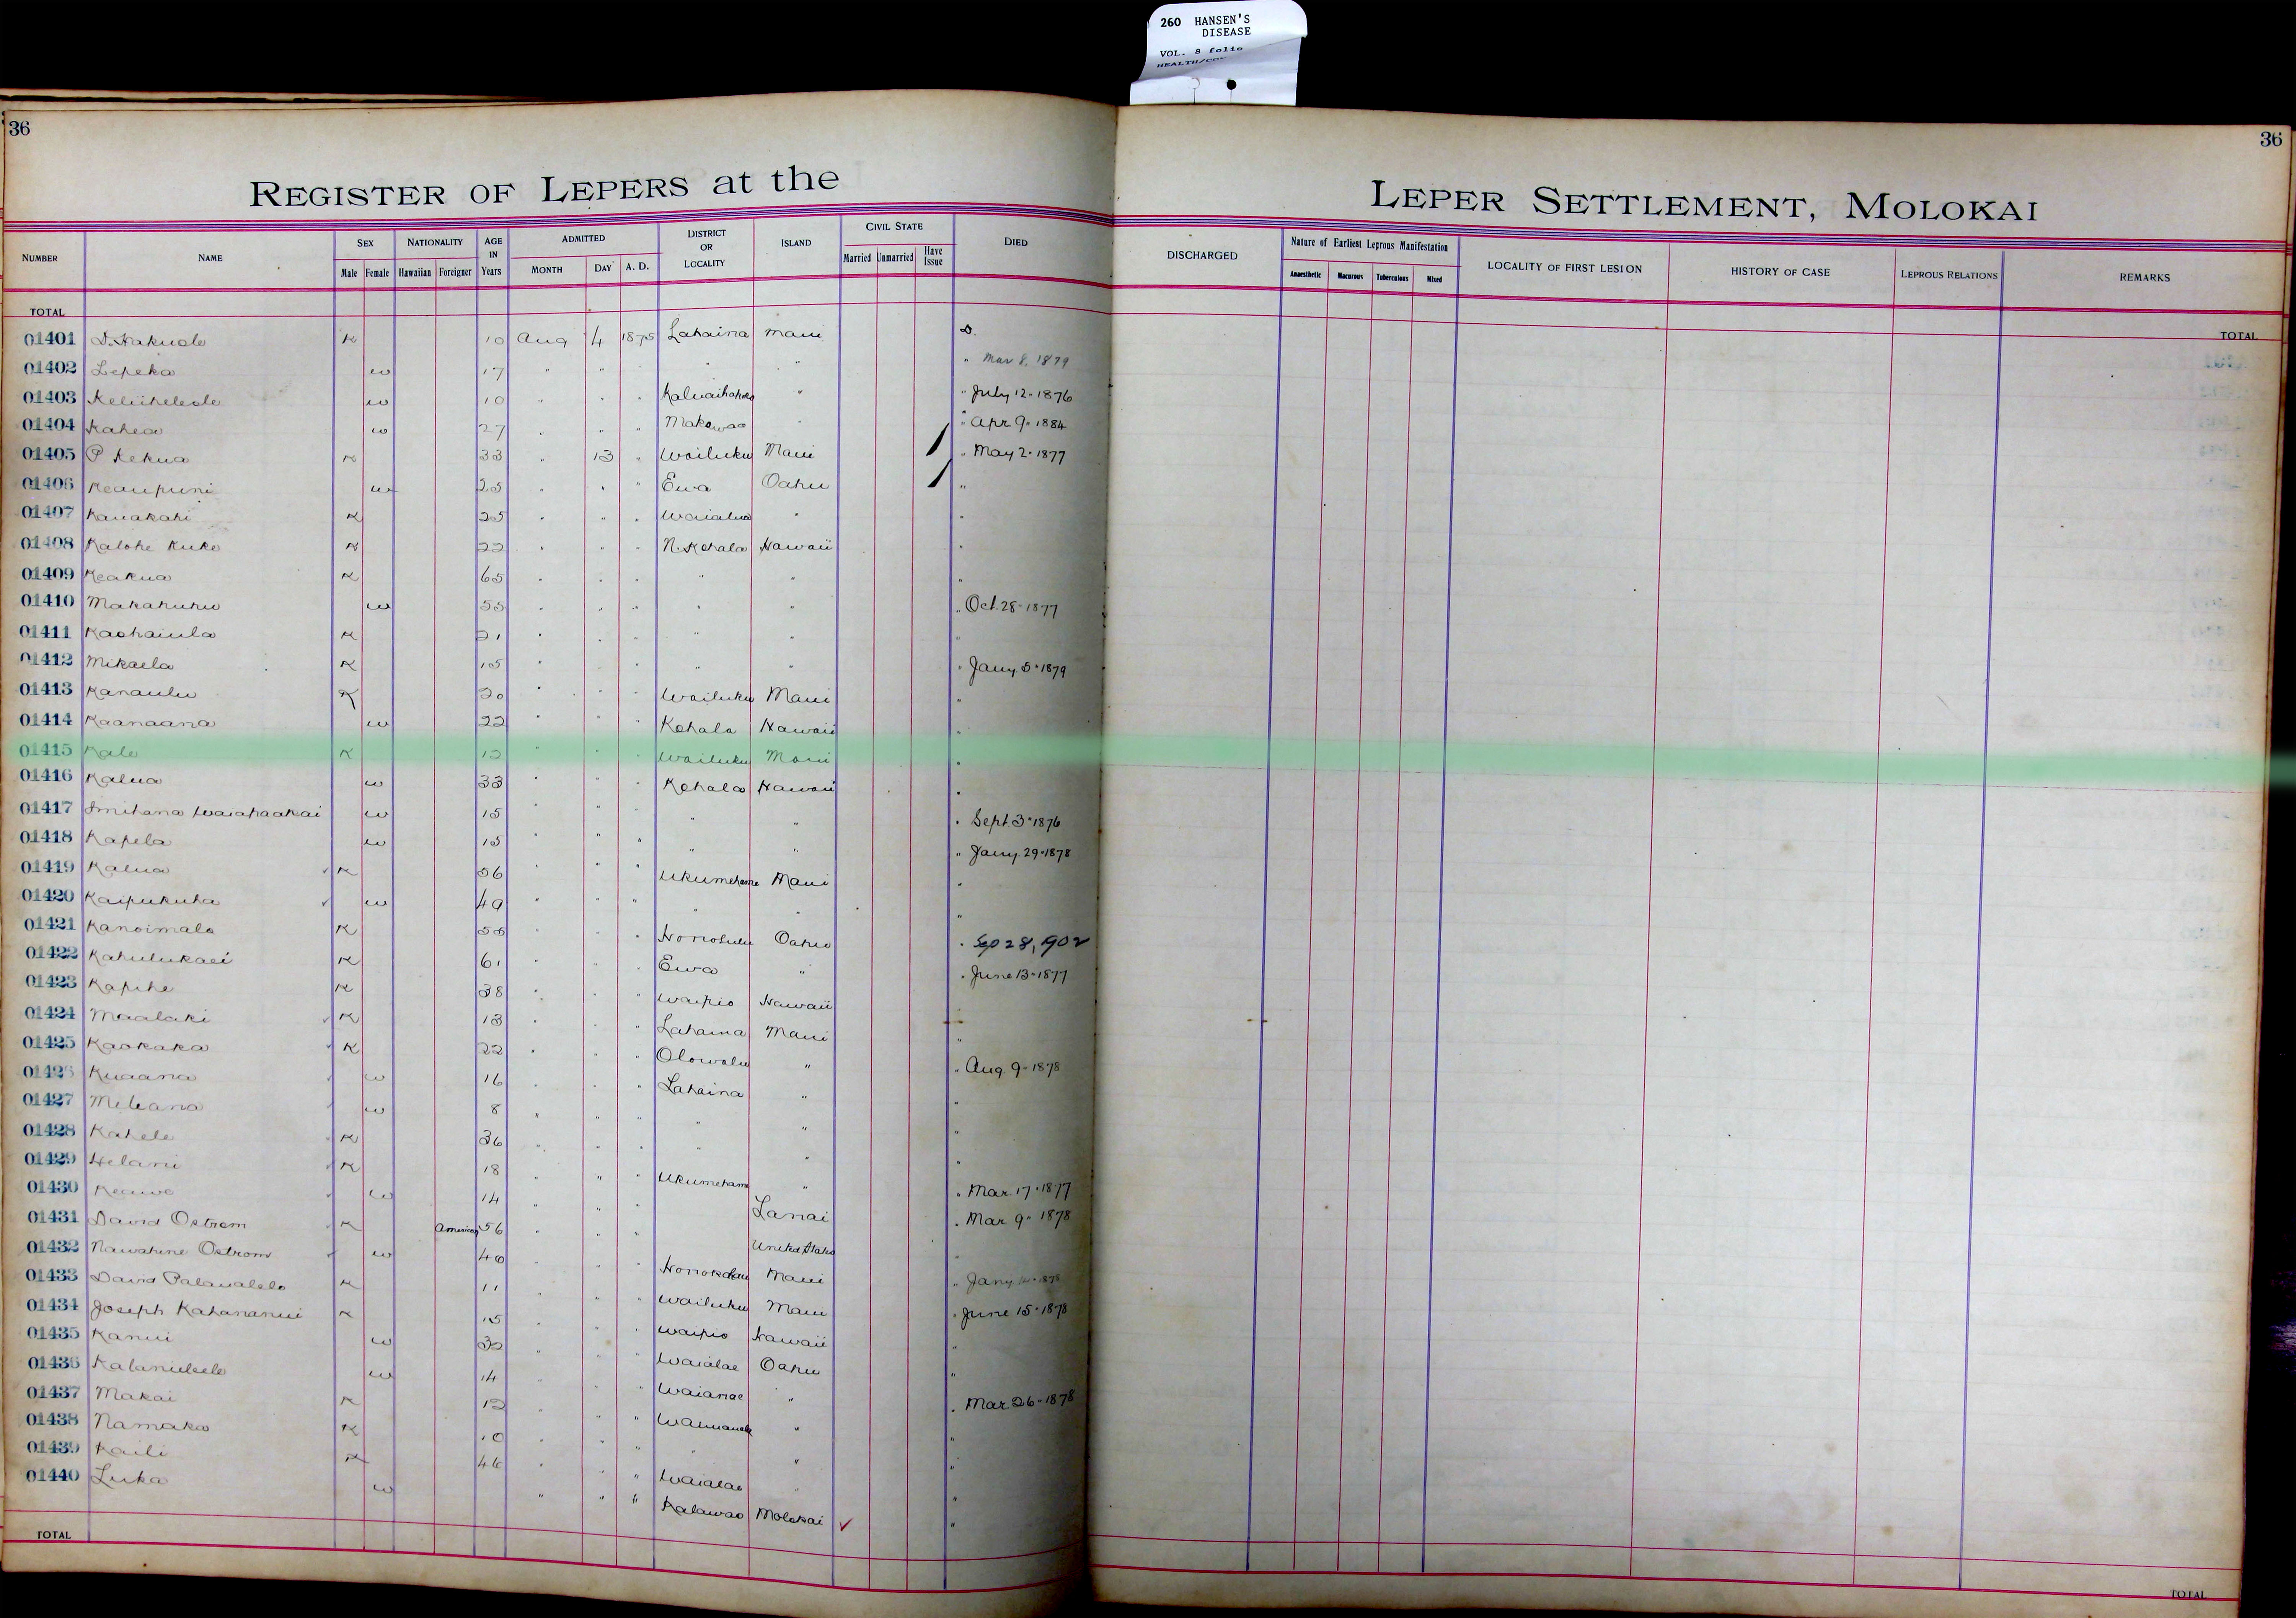 260 HANSEN'S
DISEASE
VOL. 8 folio
36
36
REGISTER OF LEPERS at the
LEPER SETTLEMENT, MOLOKAI
NUMBER NAME SEX NATIONALITY AGE IN Years ADMITTED DISTRICT OR LOCALITY ISLAND CIVIL STATE DIED DISCHARGED Nature of Earliest Leprous Manifestation LOCALITY OF FIRST LESION HISTORY OF CASE LEPROUS RELATIONS REMARKS
Male Female Hawaiian Foreigner MONTH DAY A. D. Married Unmarried Have Issue Anaesthetic Macurous Tuberculous Mixed
TOTAL TOTAL
01401 D. Hakuole K 10 Aug 4 1875 Lahaina Maui D.
01402 Lepeka w 17 " " " " " Mar 8, 1879
01403 w 10 " " " " " July 12-1876
01404 Kahea w 27 " " " Makawao " " Apr 9-1884
01405 P Kekua K 33 " 13 " Wailuku Maui " May 2-1877
01406 Keaupuni w 25 " " " Ewa Oahu "
01407 Kauakahi K 25 " " " Waialua " "
01408 Kalohe Kuke K 22 " " " N. Kohala Hawaii "
01409 Keakua K 65 " " " " " "
01410 Makahuhu w 55 " " " " " " Oct. 28-1877
01411 Kaohaiula K 21 " " " " " "
01412 Mikaela K 15 " " " " " " Jany. 5-1879
01413 Kanaulu K 20 " " " Wailuku Maui "
01414 Kaanaana w 22 " " " Kohala Hawaii "
01415 Kale K 12 " " " Wailuku Maui "
01416 Kalua w 33 " " " Kohala Hawaii "
01417 w 15 " " " " " " Sept. 3-1876
01418 Kapela w 15 " " " " " " Jany. 29-1878
01419 Kalua K 56 " " " Ukumehame Maui "
01420 Kaipukuha w 49 " " " " " "
01421 Kanoimalo K 55 " " " Honolulu Oahu " Sep 28, 1902
01422 Kahulukaei K 61 " " " Ewa " " June 13-1877
01423 Kapihe K 38 " " " Waipio Hawaii
01424 Maalaki K 13 " " " Lahaina Maui "
01425 Kaokaka K 22 " " " Olowalu " " Aug. 9-1878
01426 Kuaana w 16 " " " Lahaina " "
01427 Meleana w 8 " " " " " "
01428 Kahele K 36 " " " " " "
01429 Helani K 18 " " " Ukumehame " " Mar. 17-1877
01430 Keawe w 14 " " " Lanai " Mar. 9-1878
01431 David Ostrom K American 56 " " " United States "
01432 Nawahine Ostrom w 40 " " " Honokohau Maui " Jany.
01433 David Palaualelo K 11 " " " Wailuku Maui " June 15-1878
01434 Joseph Kahananui K 15 " " " Waipio Hawaii "
01435 Kanui w 32 " " " Waialae Oahu "
01436 w 14 " " " Waianae " " Mar. 26-1878
01437 Makai K 12 " " " " "
01438 Namaka K 10 " " " " " "
01439 Kaili K 46 " " " Waialae " "
01440 Luka w " " " Kalawao Molokai ✓ "
TOTAL TOTAL